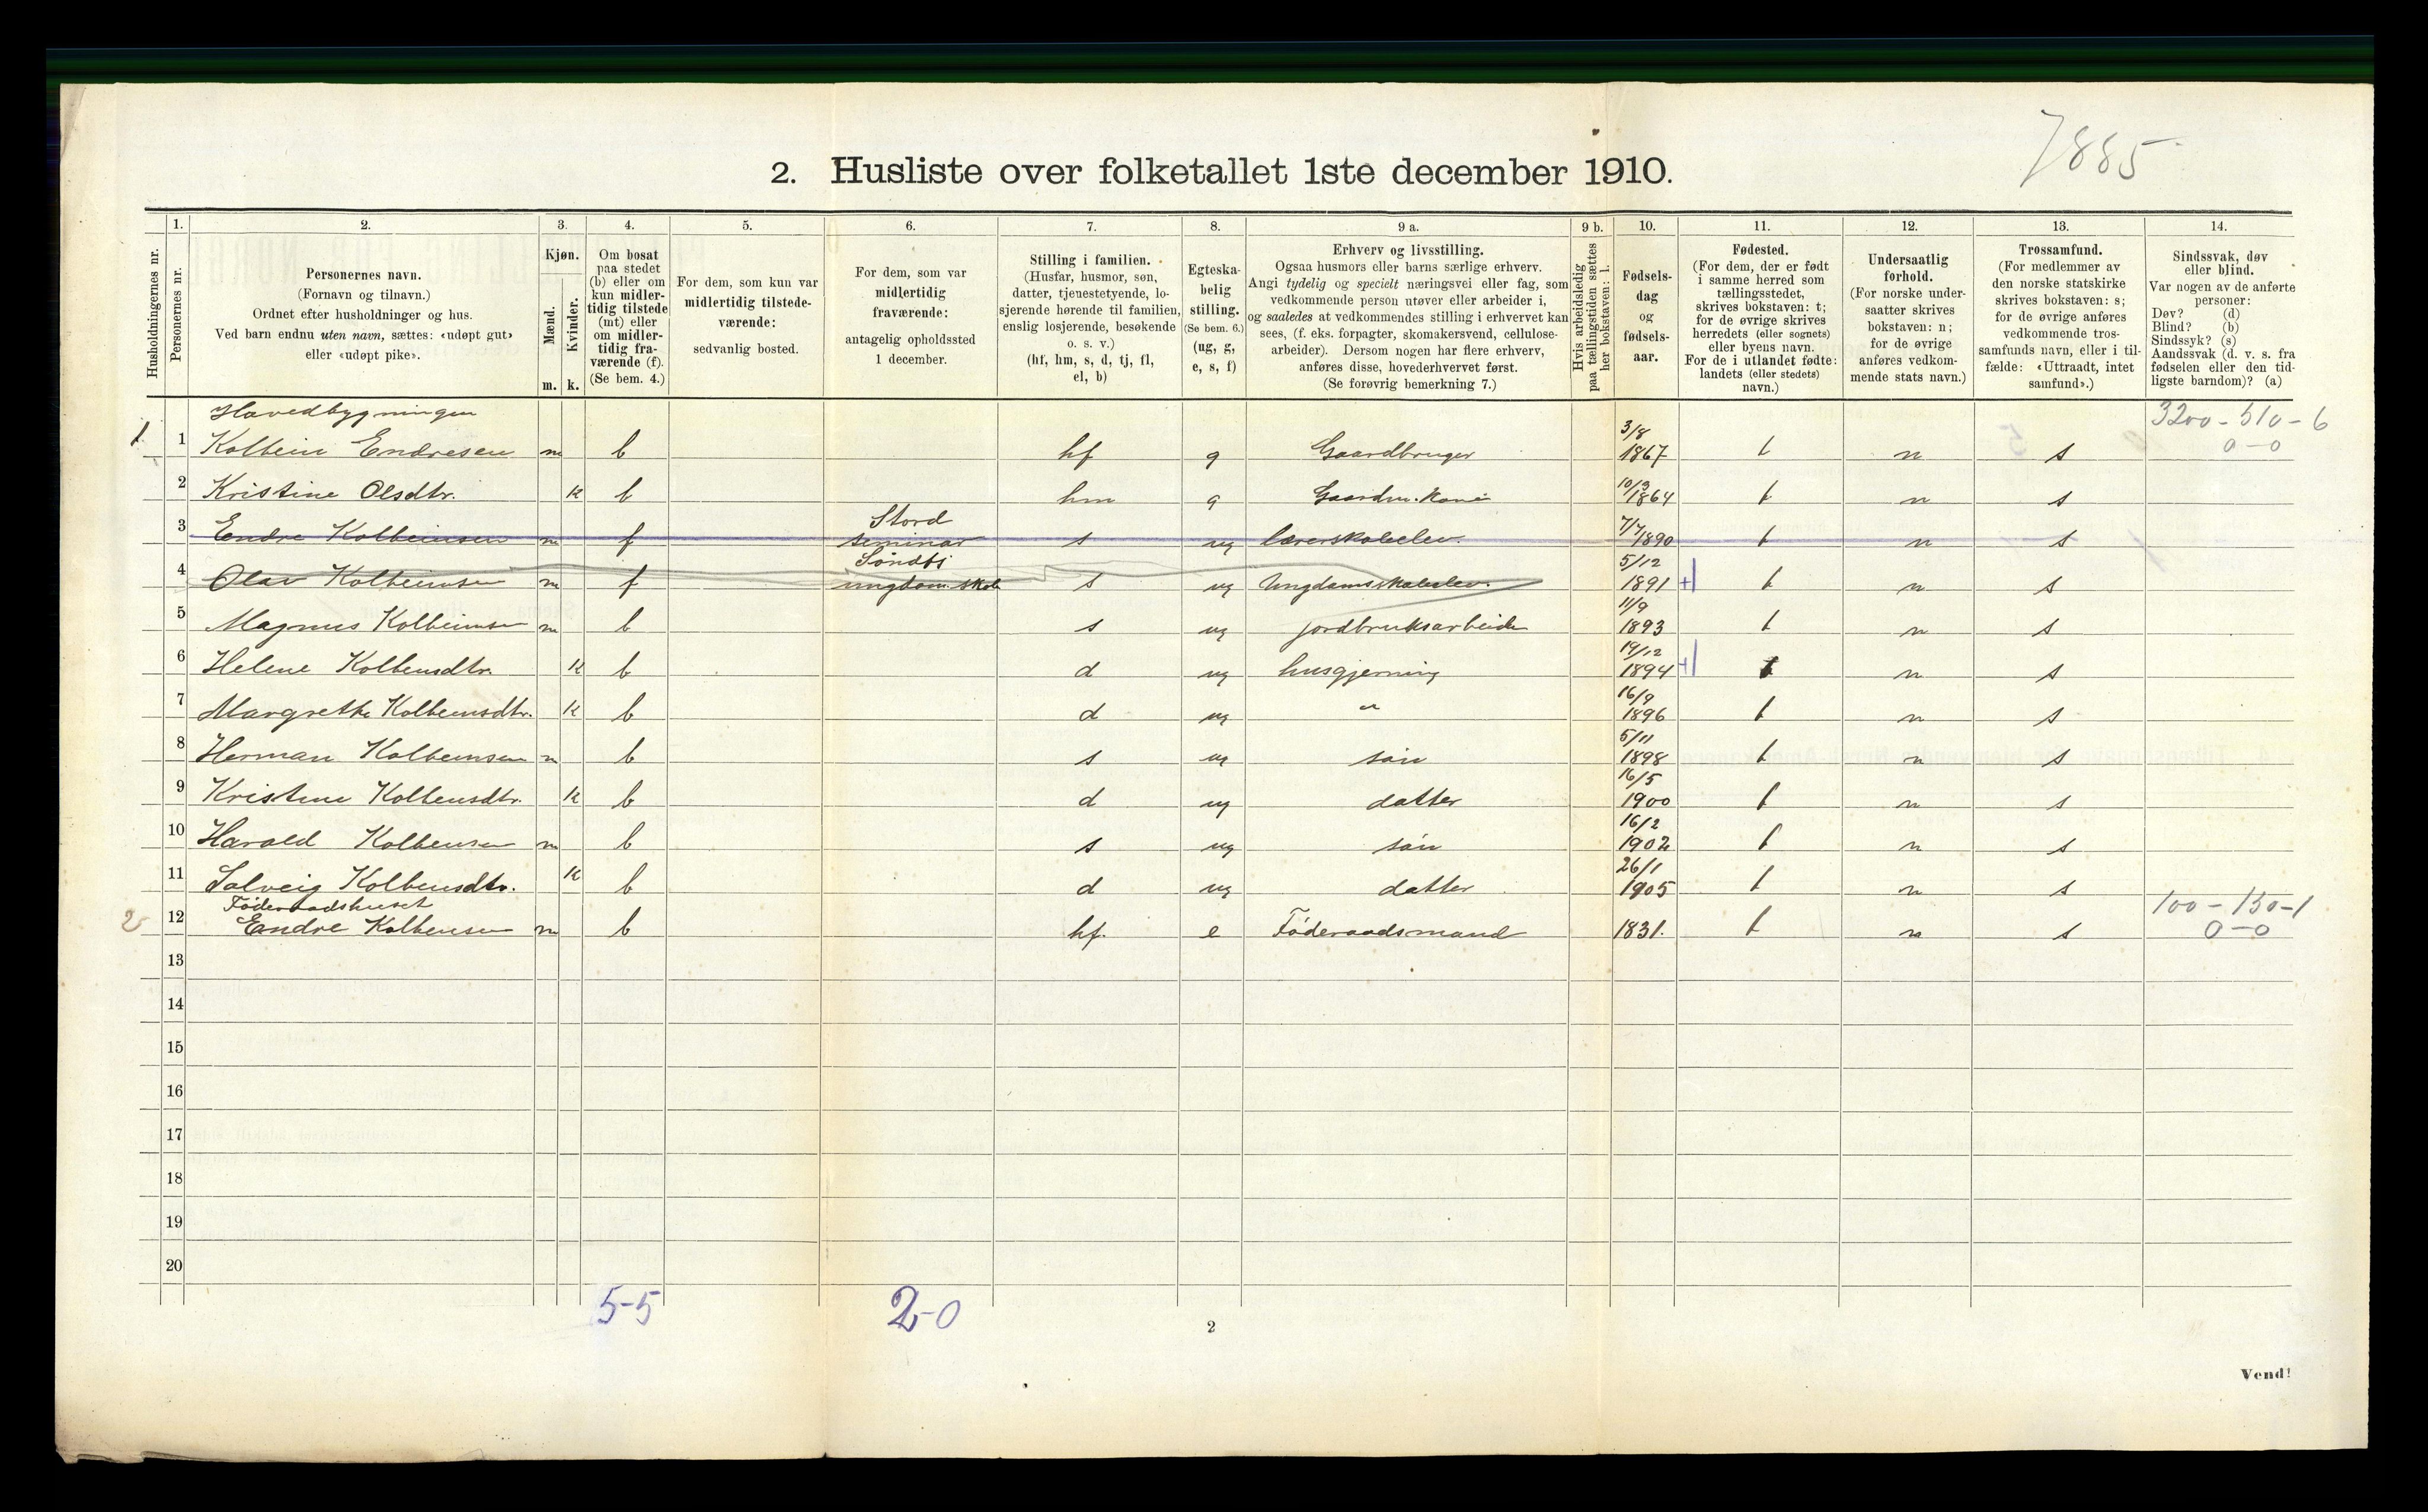 7885
2. Husliste over folketallet 1ste december 1910.
1. 2. 3. 4. 5. 6. 7. 8. 9 a. 9 b. 10. 11. 12. 13. 14.
Husholdningernes nr.
Personernes nr.
Personernes navn.
(Fornavn og tilnavn.)
Ordnet efter husholdninger og hus.
Ved barn endnu uten navn, sættes: «udøpt gut»
eller «udøpt pike».
Kjøn.
Mænd.
Kvinder.
m. k.
Om bosat
paa stedet
(b) eller om
kun midler-
tidig tilstede
(mt) eller
om midler-
tidig fra-
værende (f).
(Se bem. 4.)
For dem, som kun var
midlertidig tilstede-
værende:
sedvanlig bosted.
For dem, som var
midlertidig
fraværende:
antagelig opholdssted
1 december.
Stilling i familien.
(Husfar, husmor, søn,
datter, tjenestetyende, lo-
sjerende hørende til familien,
enslig losjerende, besøkende
o. s. v.)
(hf, hm, s, d, tj, fl,
el, b)
Egteska-
belig
stilling.
(Se bem. 6.)
(ug, g,
e, s, f)
Erhverv og livsstilling.
Ogsaa husmors eller barns særlige erhverv.
Angi tydelig og specielt næringsvei eller fag, som
vedkommende person utøver eller arbeider i,
og saaledes at vedkommendes stilling i erhvervet kan
sees, (f. eks. forpagter, skomakersvend, cellulose-
arbeider). Dersom nogen har flere erhverv,
anføres disse, hovederhvervet først.
(Se forøvrig bemerkning 7.)
Hvis arbeidsledig
paa tællingstiden sættes
her bokstaven: l.
Fødsels-
dag
og
fødsels-
aar.
Fødested.
(For dem, der er født
i samme herred som
tællingsstedet,
skrives bokstaven: t;
for de øvrige skrives
herredets (eller sognets)
eller byens navn.
For de i utlandet fødte:
landets (eller stedets)
navn.)
Undersaatlig
forhold.
(For norske under-
saatter skrives
bokstaven: n;
for de øvrige
anføres vedkom-
mende stats navn.)
Trossamfund.
(For medlemmer av
den norske statskirke
skrives bokstaven: s;
for de øvrige anføres
vedkommende tros-
samfunds navn, eller i til-
fælde: «Uttraadt, intet
samfund».)
Sindssvak, døv
eller blind.
Var nogen av de anførte
personer:
Døv? (d)
Blind? (b)
Sindssyk? (s)
Aandssvak (d. v. s. fra
fødselen eller den tid-
ligste barndom)? (a)
Hovedbygningen 3200-510-6
1 1 Kolbein Endresen m b hf g Gaardbruger 3/8 1867 t n s 0-0
2 Kristine Olsdtr. k b hm g Gaardm. Kone 10/9 1864 t n s
3 Endre Kolbeinsen m f Stord seminar s ug lærerskoleelev. 7/7 1890 t n s
4 Olav Kolbeinsen m f ungdom.skole s ug Ungdomsskoleelev. 5/12 1891 + t n s
5 Magnus Kolbeinsen m b s ug jordbruksarbeide 11/9 1893 t n s
6 Helene Kolbensdtr. k b d ug husgjerning 19/12 1894 + t n s
7 Margrethe Kolbeinsdtr. k b d ug " 16/9 1896 t n s
8 Herman Kolbeinsen m b s ug søn 5/11 1898 t n s
9 Kristine Kolbensdtr. k b d ug datter 16/5 1900 t n s
10 Harald Kolbensen m b s ug søn 16/2 1902 t n s
11 Solveig Kolbensdtr. k b d ug datter 26/1 1905 t n s
Föderaadshuset 100-130-1
2 12 Endre Kolbensen m b hf. e Föderaadsmand 1831. t n s 0-0
13
14
15
16
17
18
19
20
5-5 2-0
2
Vend!